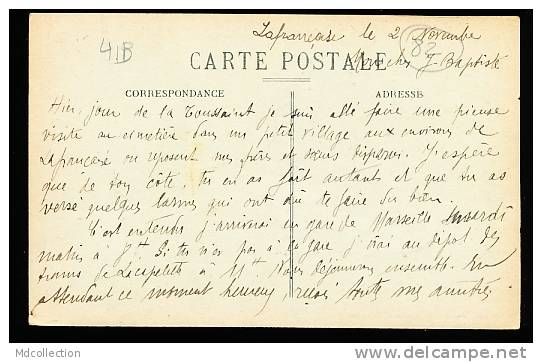 Lafrançaise le 2 Novembre
41B
82
CARTE POSTALE
Mon cher J-Baptiste
CORRESPONDANCE
ADRESSE
Hier, jour de la Toussaint je suis allé faire une pieuse
visite au cimetière dans un petit village aux environs de
Lafrançaise ou reposent mes frères et sœurs disparus. J'espère
que de ton côté, tu en as fait autant et que tu as
versé quelques larmes qui ont dû te faire du bien.
C'est entendu j'arriverai en gare de Marseille
matin à 7h Si tu n'es pas à la gare j'irai au dépot des
trams de à 11h. Nous déjeunerons ensemble. En
attendant ce moment heureux, reçois toutes mes amitiés.
MDcollection
http://www.delcampe.net